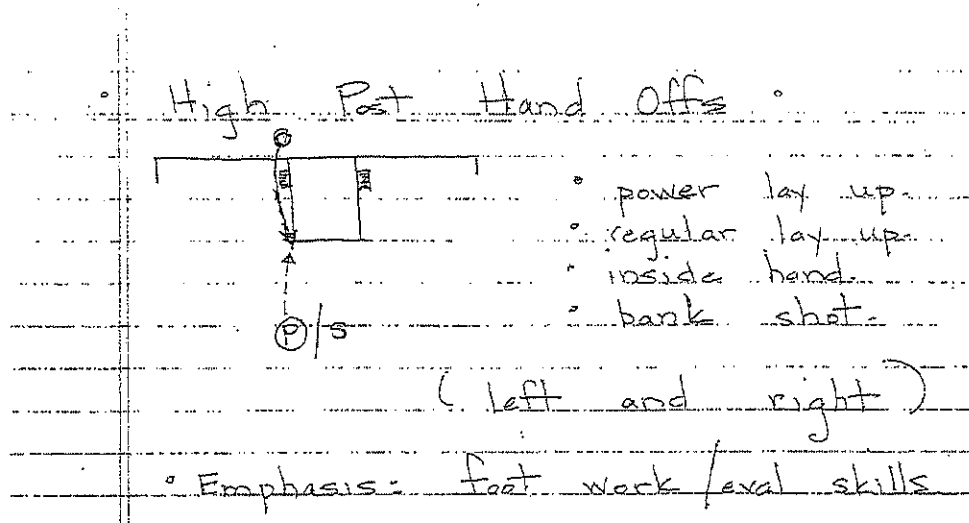 • High Post Hand Offs •
• power lay up.
• regular lay up.
• inside hand.
• bank shot.
P/S
(left and right)
• Emphasis: foot work/eval skills